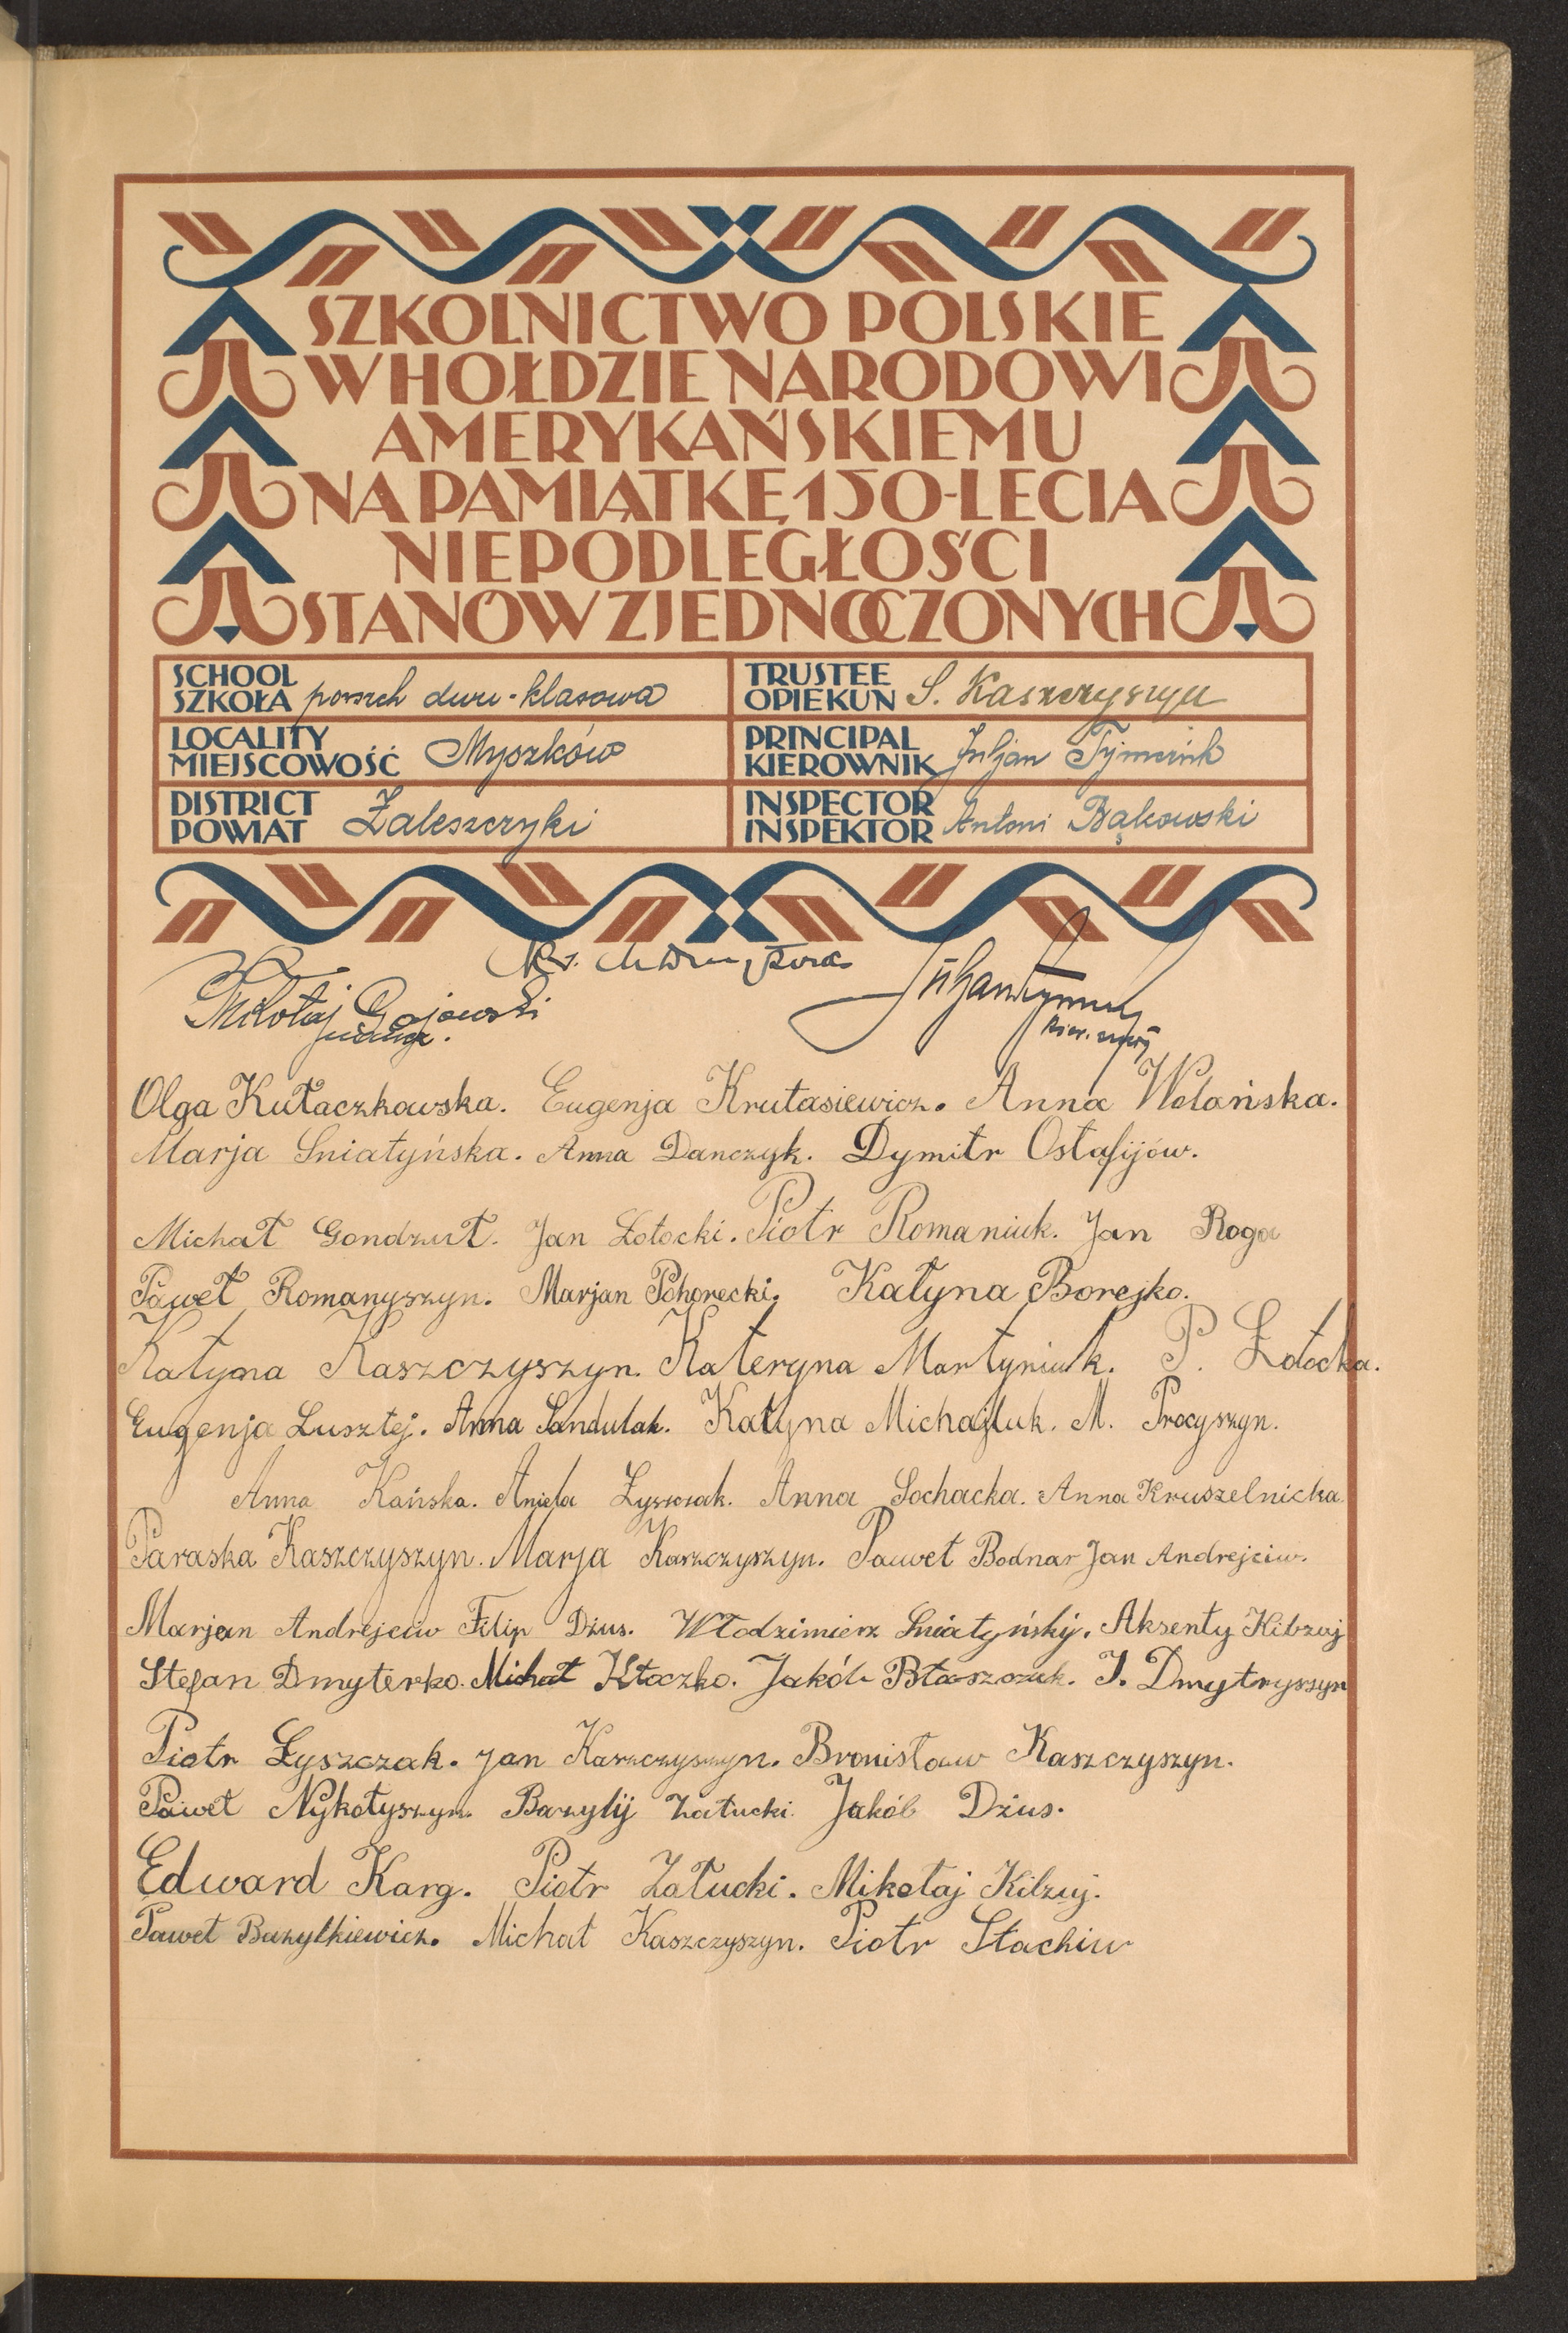 SZKOLNICTWO POLSKIE
W HOŁDZIE NARODOWI
AMERYKAŃSKIEMU
NA PAMIĄTKĘ 150-LECIA
NIEPODLEGŁOŚCI
STANÓW ZJEDNOCZONYCH
SCHOOL
SZKOŁA powsch dwu-klasowa
TRUSTEE
OPIEKUN S. Kaszczyszyn
LOCALITY
MIEJSCOWOŚĆ Myszków
PRINCIPAL
KIEROWNIK Juljan Tymciuk
DISTRICT
POWIAT Zaleszczyki
INSPECTOR
INSPEKTOR Antoni Bąkowski
Ks.
Mikołaj Gajowski
Olga Kułaczkowska. Eugenja Krutasiewicz. Anna Wolańska.
Marja Sniatyńska. Anna Danczyk. Dymitr Ostafijów.
Michał Gondzuł. Jan Złotocki. Piotr Romaniuk. Jan Roga
Paweł Romanyszyn. Marjan Pohorecki. Katyna Borejko.
Katyna Kaszczyszyn. Kateryna Martyniuk. P. Złotocka.
Eugenja Lusztej. Anna Sandulak. Katyna Michajluk. M. Procyszyn.
Anna Kańska. Aniela Łyszczak. Anna Sochacka. Anna Kruszelnicka
Paraska Kaszczyszyn. Marja Kaszczyszyn. Paweł Bodnar Jan Andrejciw.
Marjan Andrejciw Filip Dżus. Włodzimierz Sniatyński. Aksenty Kibzuj
Stefan Dmyterko. Michał Kłaczko. Jakób Błaszczuk. J. Dmytryszyn
Piotr Łyszczak. Jan Kaszczyszyn. Bronisław Kaszczyszyn.
Paweł Nykołyszyn. Bazylij Załucki. Jakób Dżus.
Edward Karg. Piotr Załucki. Mikołaj Kibzuj.
Paweł Bazylkiewicz. Michał Kaszczyszyn. Piotr Stachiw